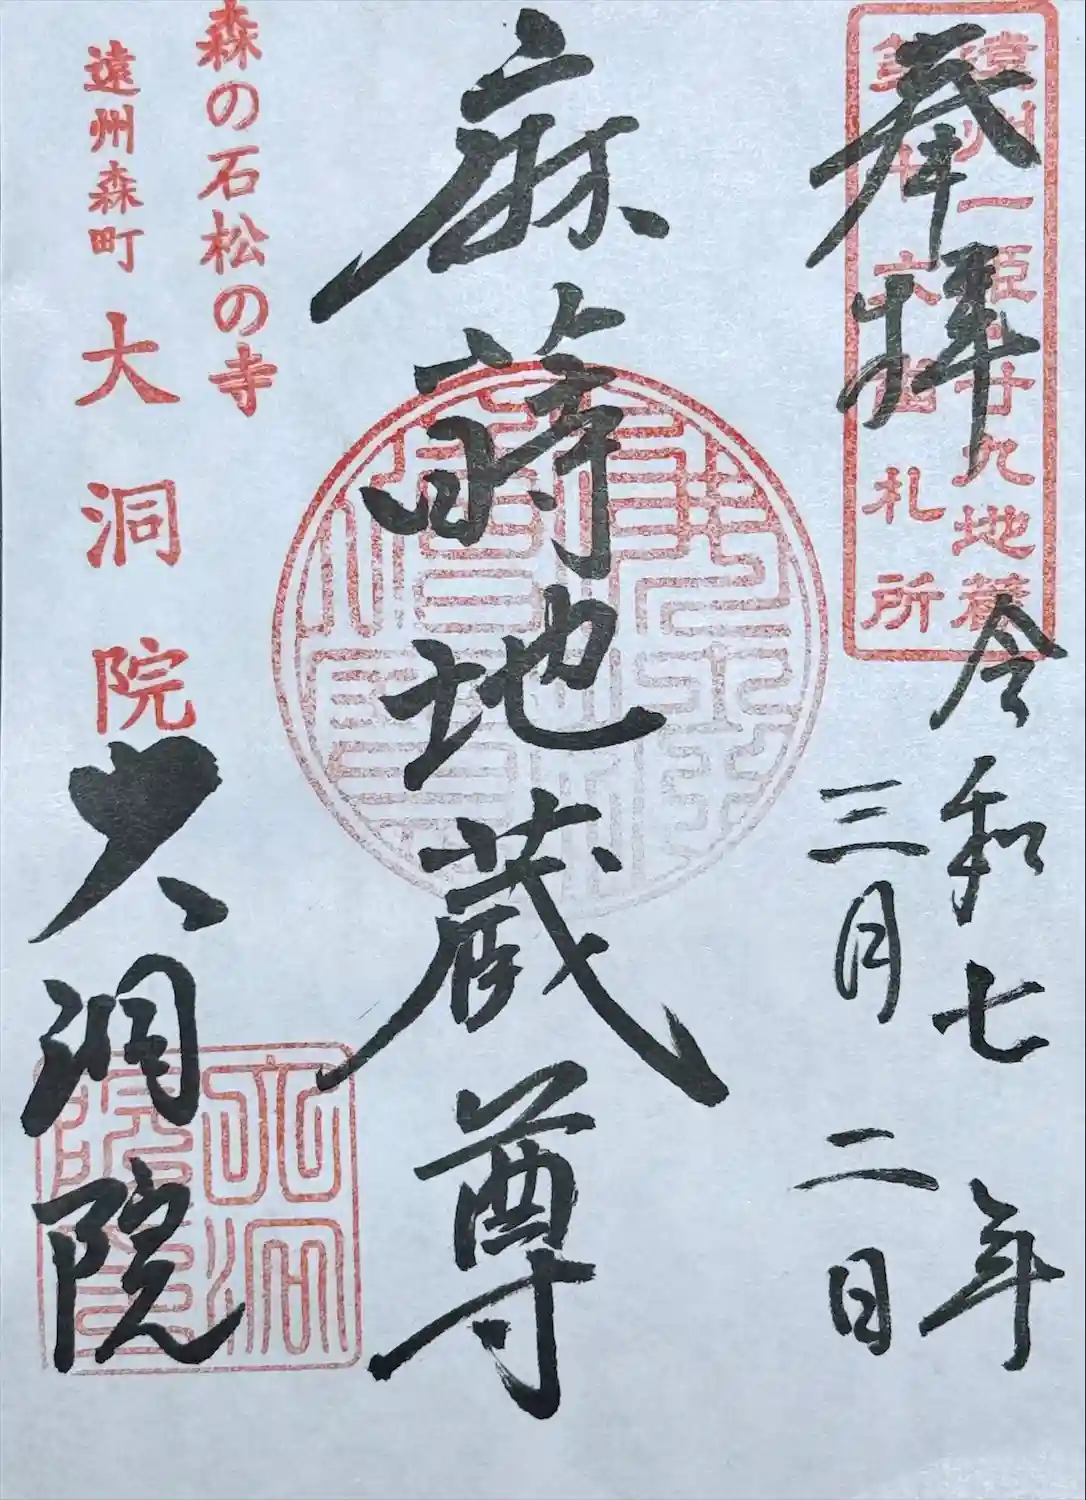 奉拝
遠州一
廿九地蔵
札所
令和七年
三月二日
麻蒔地蔵尊
森の石松の寺
遠州森町 大洞院
大洞院